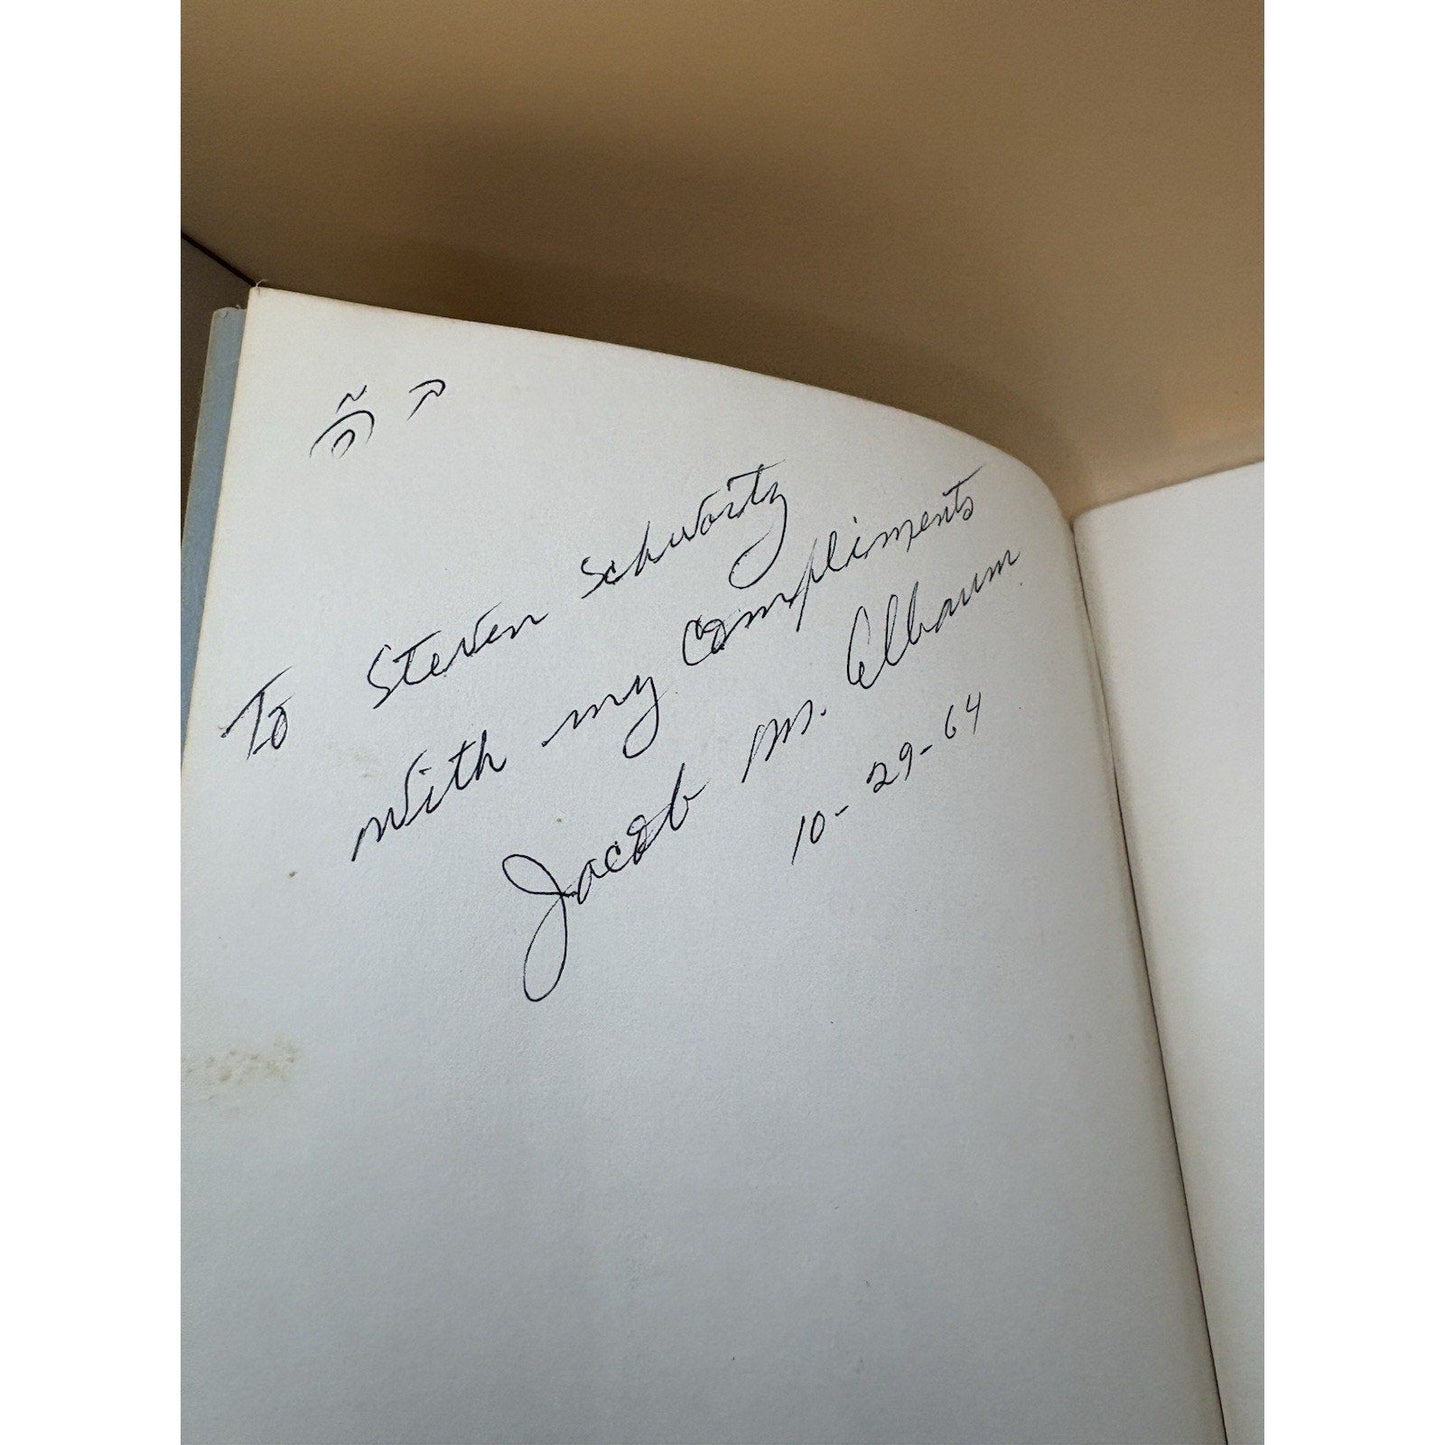 To Steven Schwartz
with my compliments
Jacob M. Elbaum
10-29-64